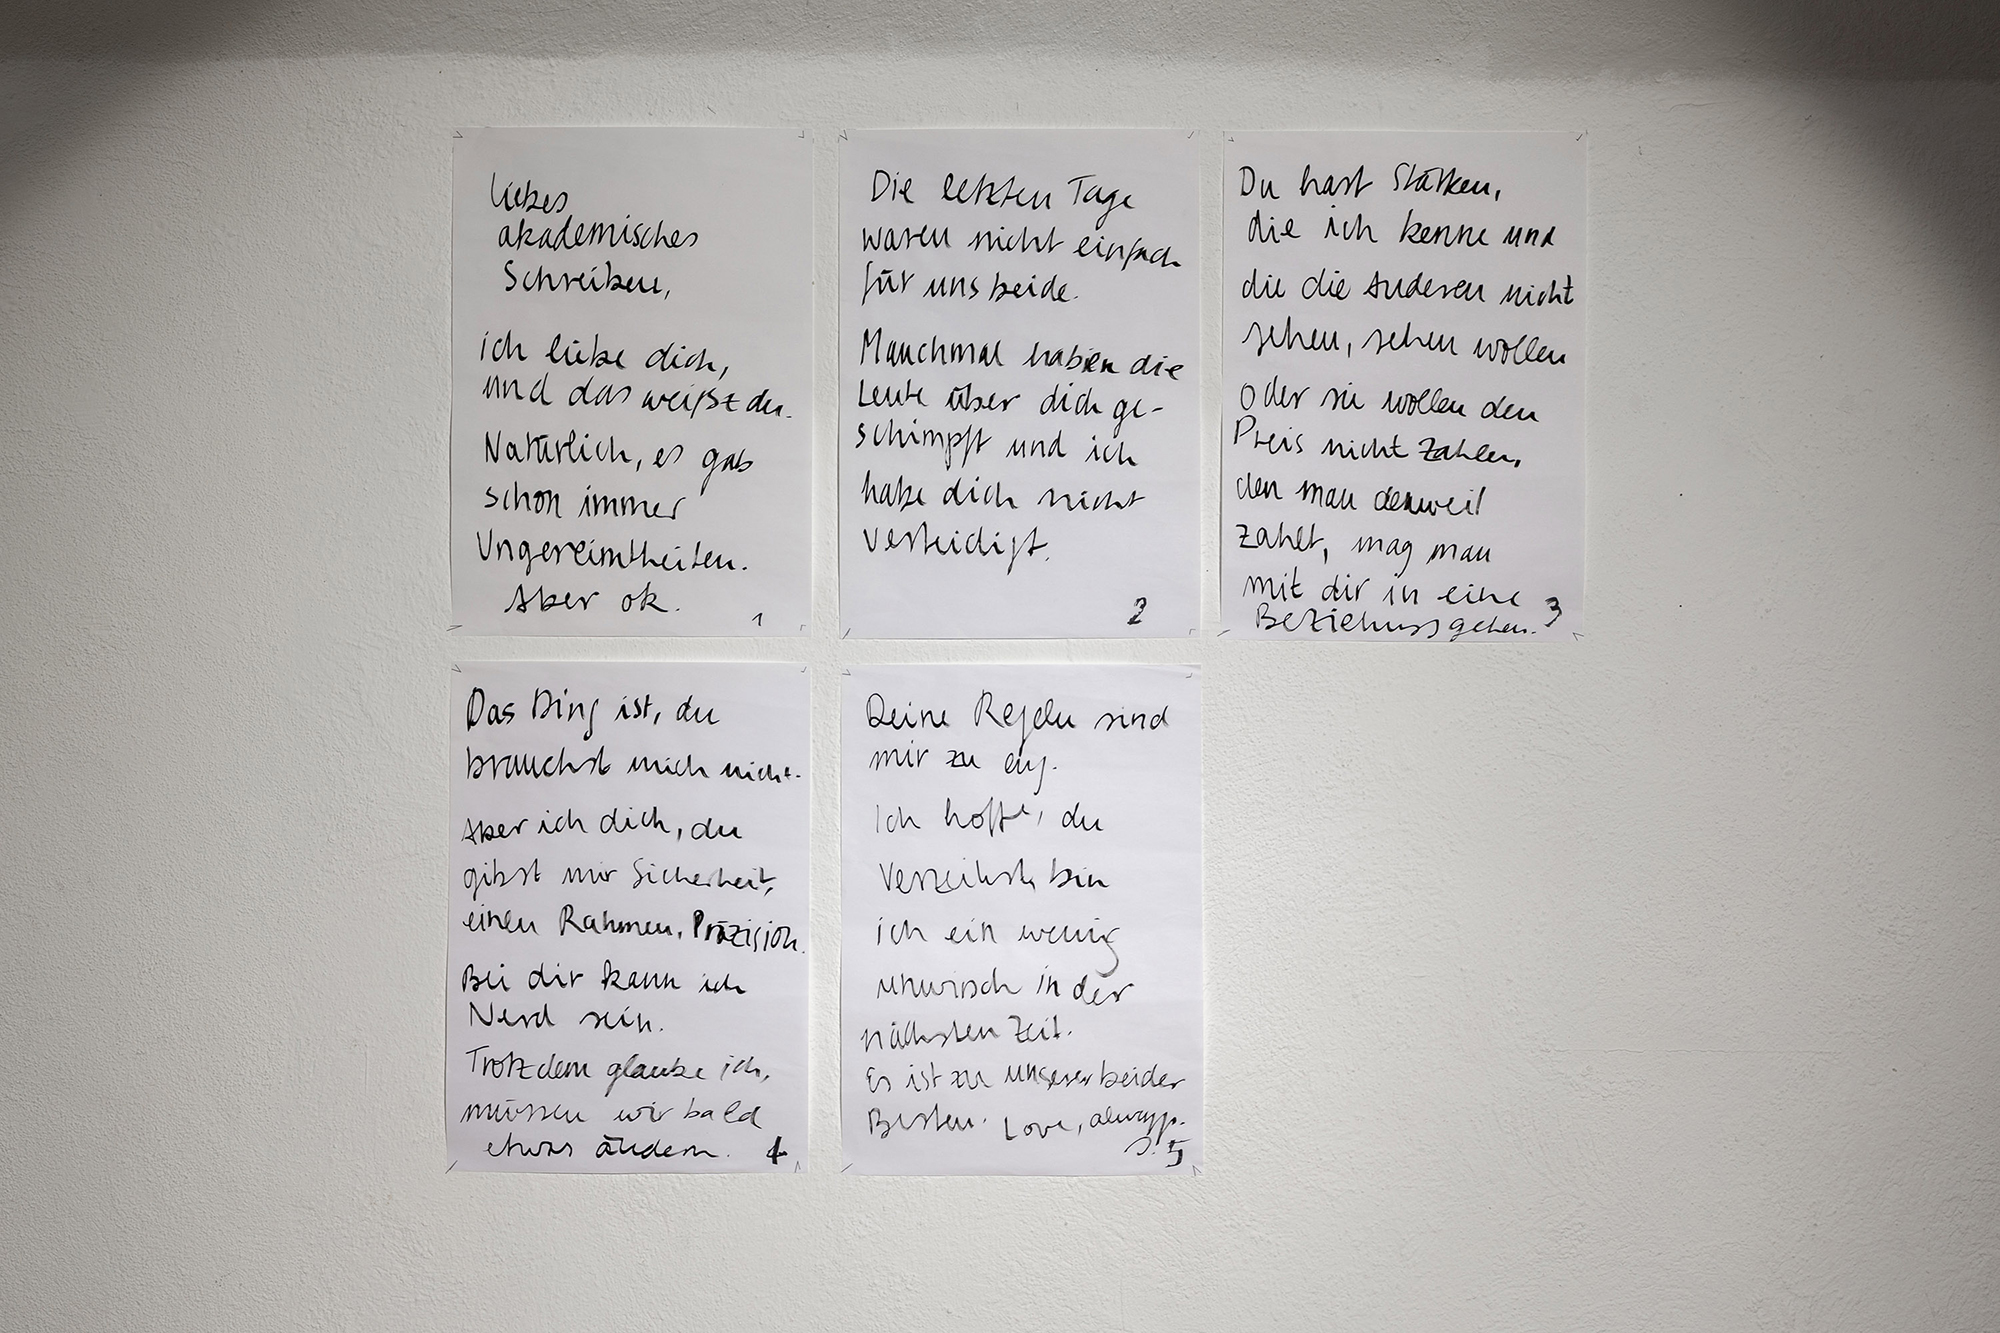 liebes
akademisches
Schreiben,
ich liebe dich,
und das weißt du.
Natürlich, es gab
schon immer
Ungereimtheiten.
Aber ok.
1
Die letzten Tage
waren nicht einfach
für uns beide.
Manchmal haben die
Leute über dich ge-
schimpft und ich
habe dich nicht
verteidigt.
2
Du hast Stärken,
die ich kenne und
die die Anderen nicht
sehen, sehen wollen
oder sie wollen den
Preis nicht zahlen,
den man derweil
zahlt, mag man
mit dir in eine
Beziehung gehen.
3
Das Ding ist, du
brauchst mich nicht.
Aber ich dich, du
gibst mir Sicherheit,
einen Rahmen, Präzision.
Bei dir kann ich
Nerd sein.
Trotzdem glaube ich,
müssen wir bald
etwas ändern.
4
Deine Regeln sind
mir zu eng.
Ich hoffe, du
verzeihst, bin
ich ein wenig
unwirsch in der
nächsten Zeit.
Es ist zu unserer beider
Besten. Love, always.
5